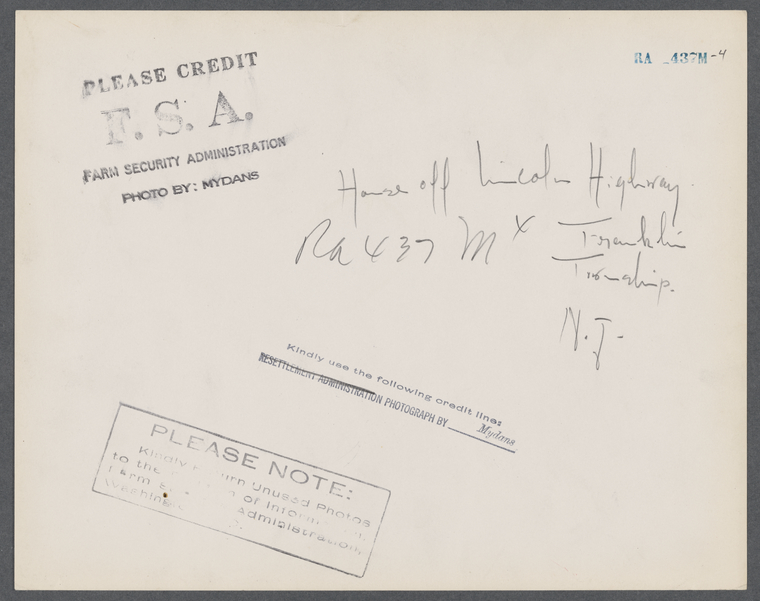 PLEASE CREDIT
F. S. A.
FARM SECURITY ADMINISTRATION
PHOTO BY: MYDANS
RA _437M-4
House off Lincoln Highway
Ra 437 M x Franklin
Township.
N.J.
Kindly use the following credit line:
RESETTLEMENT ADMINISTRATION PHOTOGRAPH BY Mydans
PLEASE NOTE:
Kindly Unused Photos
to the of
Farm Administration,